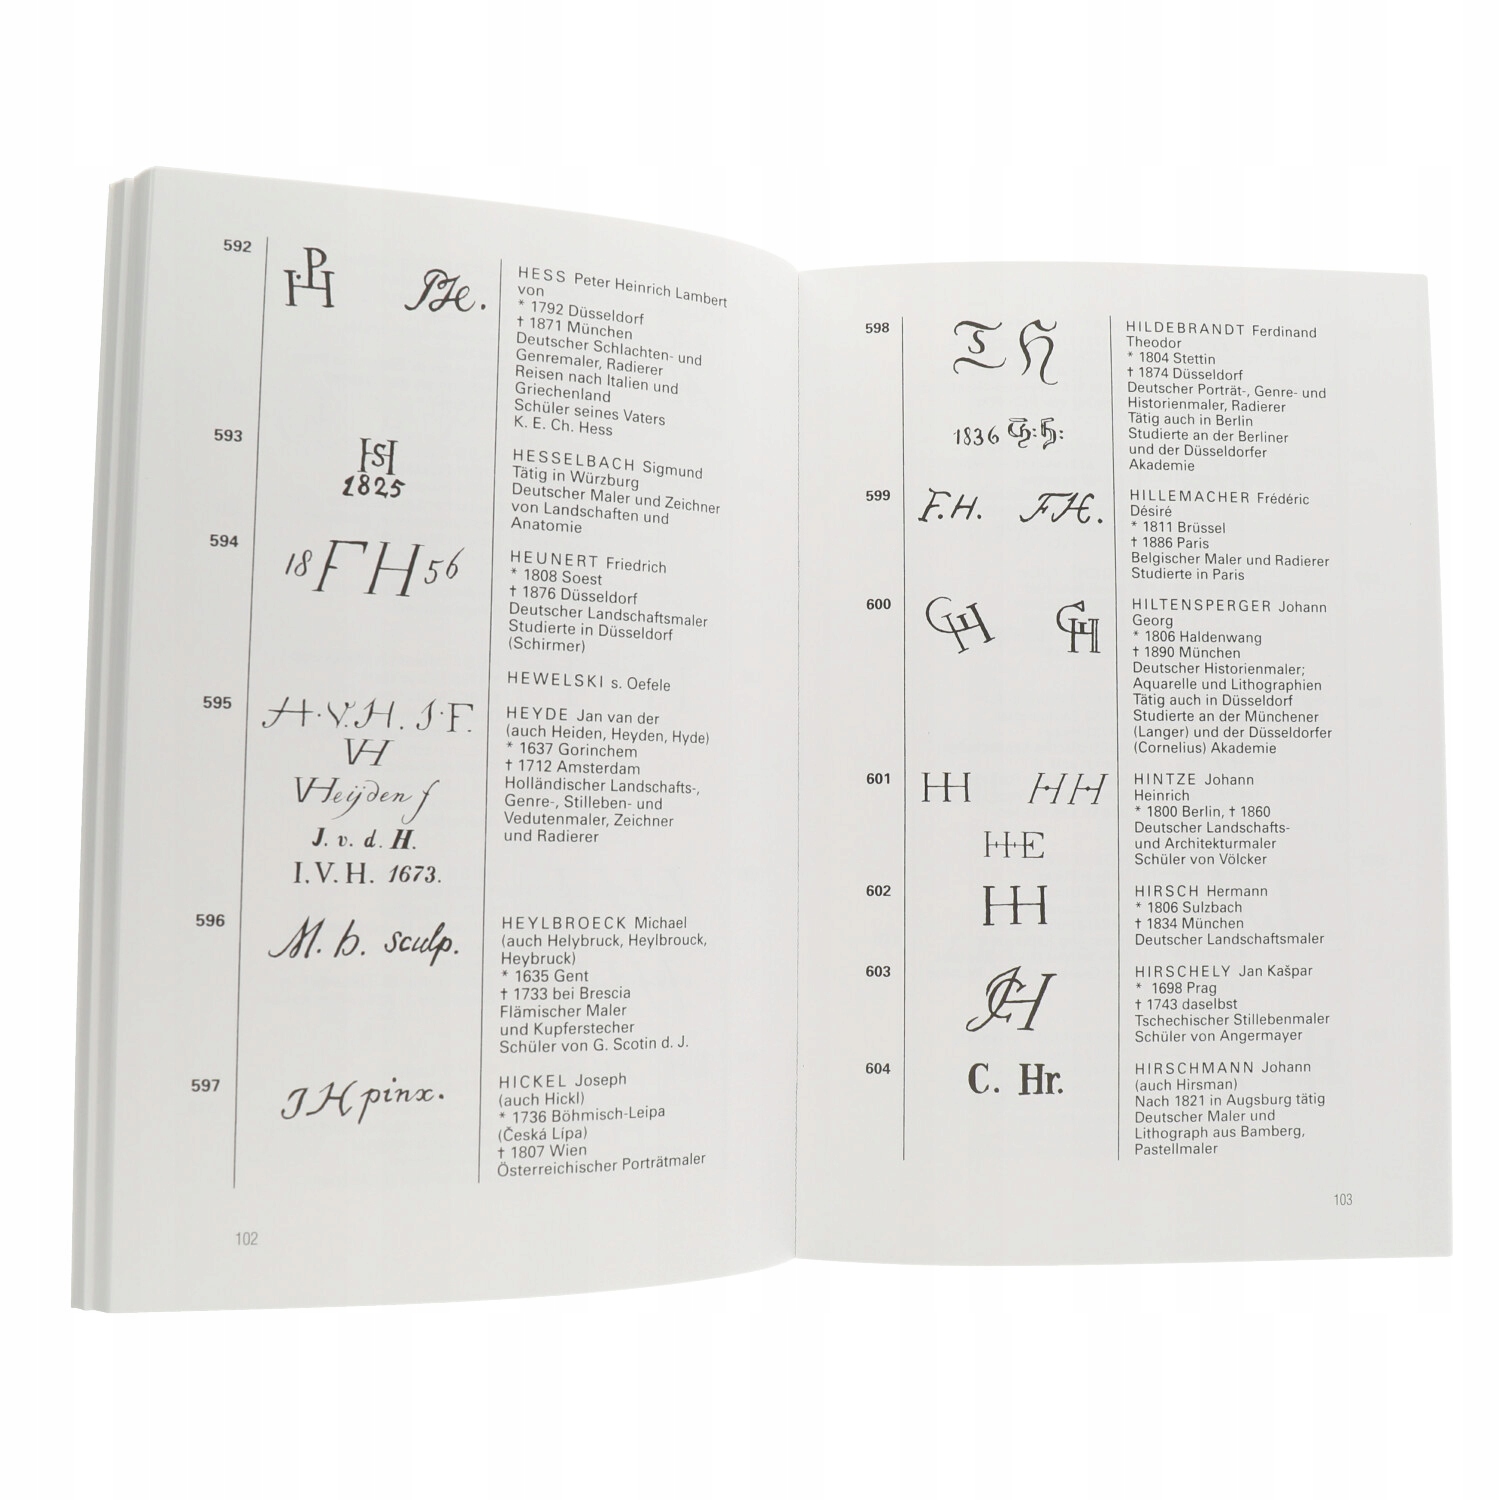 592
PH
PH.
HESS Peter Heinrich Lambert
von
* 1792 Düsseldorf
† 1871 München
Deutscher Schlachten- und
Genremaler, Radierer
Reisen nach Italien und
Griechenland
Schüler seines Vaters
K. E. Ch. Hess
593
HS
1825
HESSELBACH Sigmund
Tätig in Würzburg
Deutscher Maler und Zeichner
von Landschaften und
Anatomie
594
18 FH 56
HEUNERT Friedrich
* 1808 Soest
† 1876 Düsseldorf
Deutscher Landschaftsmaler
Studierte in Düsseldorf
(Schirmer)
HEWELSKI s. Oefele
595
H.V.H. J.F.
VH
VHeijden f
J. v. d. H.
I.V.H. 1673.
HEYDE Jan van der
(auch Heiden, Heyden, Hyde)
* 1637 Gorinchem
† 1712 Amsterdam
Holländischer Landschafts-,
Genre-, Stilleben- und
Vedutenmaler, Zeichner
und Radierer
596
M. b. sculp.
HEYLBROECK Michael
(auch Helybruck, Heylbrouck,
Heybruck)
* 1635 Gent
† 1733 bei Brescia
Flämischer Maler
und Kupferstecher
Schüler von G. Scotin d. J.
597
JH pinx.
HICKEL Joseph
(auch Hickl)
* 1736 Böhmisch-Leipa
(Česká Lípa)
† 1807 Wien
Österreichischer Porträtmaler
102
598
TH
1836 Th: H:
HILDEBRANDT Ferdinand
Theodor
* 1804 Stettin
† 1874 Düsseldorf
Deutscher Porträt-, Genre- und
Historienmaler, Radierer
Tätig auch in Berlin
Studierte an der Berliner
und der Düsseldorfer
Akademie
599
F.H. FH.
HILLEMACHER Frédéric
Désiré
* 1811 Brüssel
† 1886 Paris
Belgischer Maler und Radierer
Studierte in Paris
600
GH GH
HILTENSPERGER Johann
Georg
* 1806 Haldenwang
† 1890 München
Deutscher Historienmaler;
Aquarelle und Lithographien
Tätig auch in Düsseldorf
Studierte an der Münchener
(Langer) und der Düsseldorfer
(Cornelius) Akademie
601
HH HH
HE
HINTZE Johann
Heinrich
* 1800 Berlin, † 1860
Deutscher Landschafts-
und Architekturmaler
Schüler von Völcker
602
HH
HIRSCH Hermann
* 1806 Sulzbach
† 1834 München
Deutscher Landschaftsmaler
603
JCH
HIRSCHELY Jan Kašpar
* 1698 Prag
† 1743 daselbst
Tschechischer Stillebenmaler
Schüler von Angermayer
604
C. Hr.
HIRSCHMANN Johann
(auch Hirsman)
Nach 1821 in Augsburg tätig
Deutscher Maler und
Lithograph aus Bamberg,
Pastellmaler
103